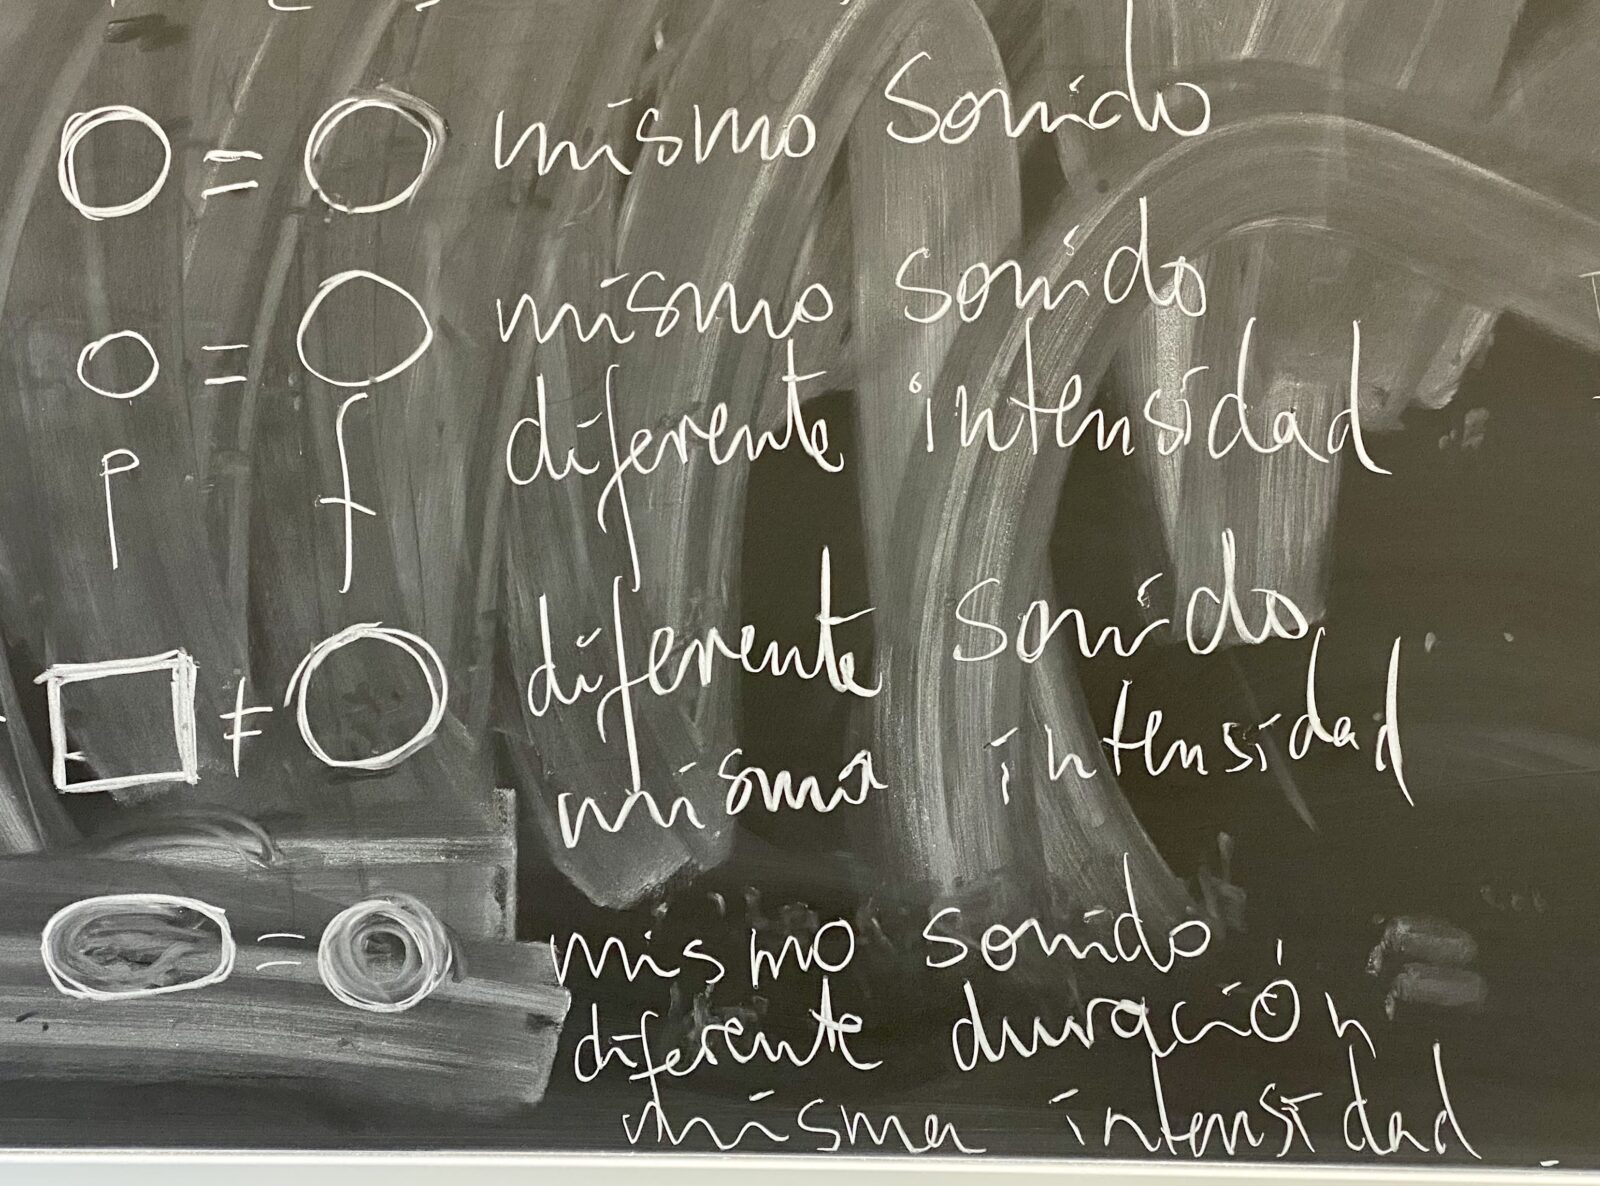 = mismo sonido
= mismo sonido
p f diferente intensidad
≠ diferente sonido
misma intensidad
= mismo sonido,
diferente duración
misma intensidad